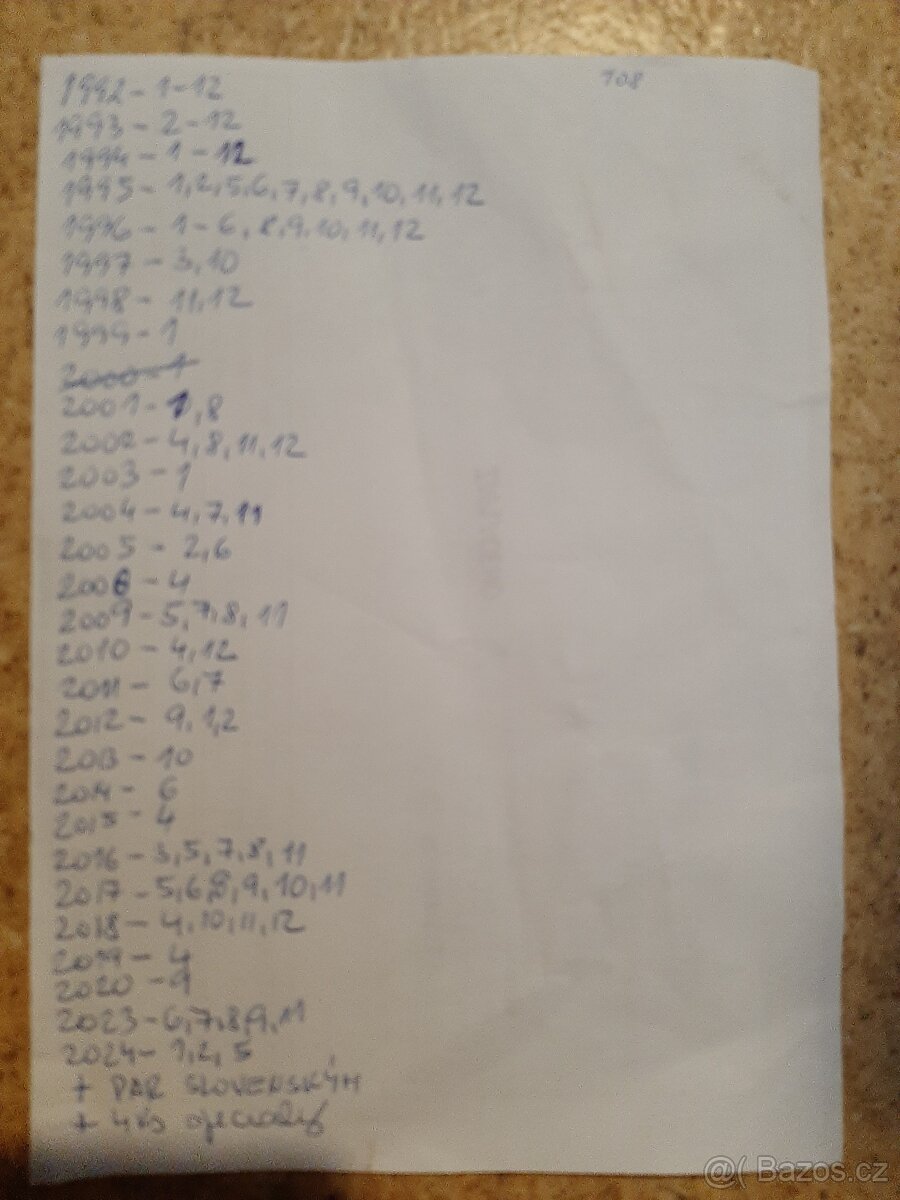 108
1992 - 1 - 12
1993 - 2 - 12
1994 - 1 - 12
1995 - 1,2,5,6,7,8,9,10,11,12
1996 - 1 - 6, 8,9,10,11,12
1997 - 3,10
1998 - 11,12
1999 - 1
2000 - 1
2001 - 1,8
2002 - 4,8,11,12
2003 - 1
2004 - 4,7,11
2005 - 2,6
2006 - 4
2009 - 5,7,8,11
2010 - 4,12
2011 - 6,7
2012 - 9,1,2
2013 - 10
2014 - 6
2015 - 4
2016 - 3,5,7,8,11
2017 - 5,6,8,9,10,11
2018 - 4,10,11,12
2019 - 4
2020 - 9
2023 - 6,7,8,9,11
2024 - 1,2,5
+ PAR SLOVENSKÝH
+ 4 ks speciály
@( Bazos.cz